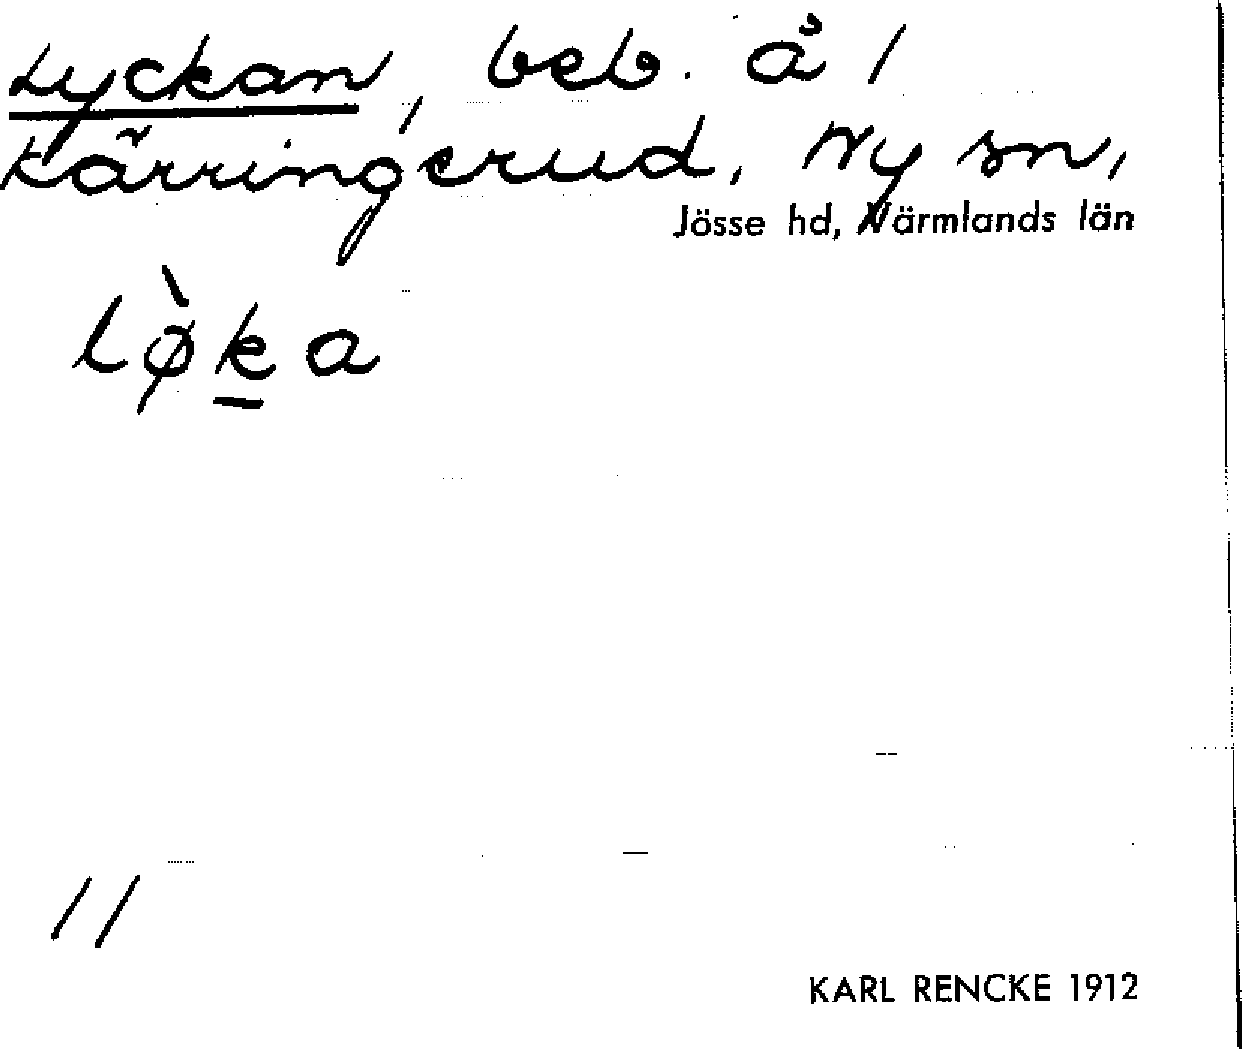 Lyckan, beb. å 1
Kärringerud, Ny sn,
Jösse hd, Värmlands län
lø̀ka
11
KARL RENCKE 1912